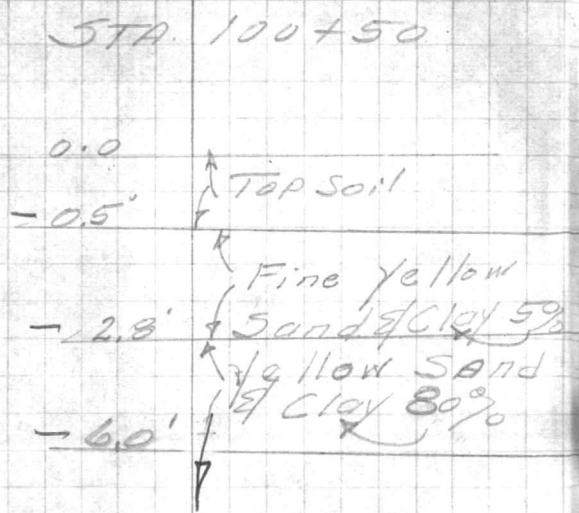 STA. 100+50
0.0
Top Soil
- 0.5'
Fine Yellow
- 2.8' Sand & Clay 5%
Yellow Sand
& Clay 80%
- 6.0'